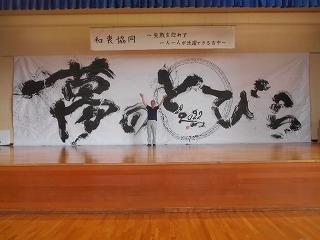 和衷協同 ～失敗を恐れず
一人一人が活躍できる古中～
夢のとびら
2022